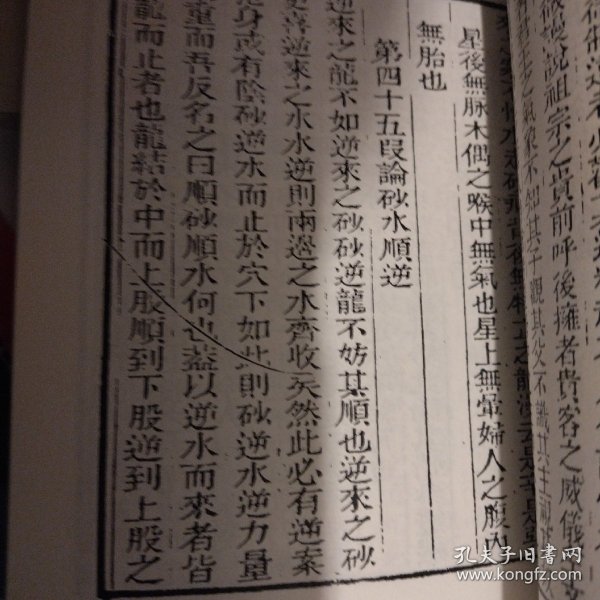 說祖宗之貴前呼後擁者貴客之威儀
氣象不知其子觀其父不識其主
星後無脉木偶之喉中無氣也星上無暈婦人之腹內
無胎也
第四十五叚論砂水順逆
逆來之龍不如逆來之砂砂逆龍不妨其順也逆來之砂
喜逆來之水水逆則兩邊之水齊收矣然此必有逆案
身或有陰砂逆水而止於穴下如此則砂逆水逆力量
重而吾反名之曰順砂順水何也葢以逆水而來者皆
龍而止者也龍結於中而上股順到下股逆到上股之
孔夫子旧书网
www.kongfz.com